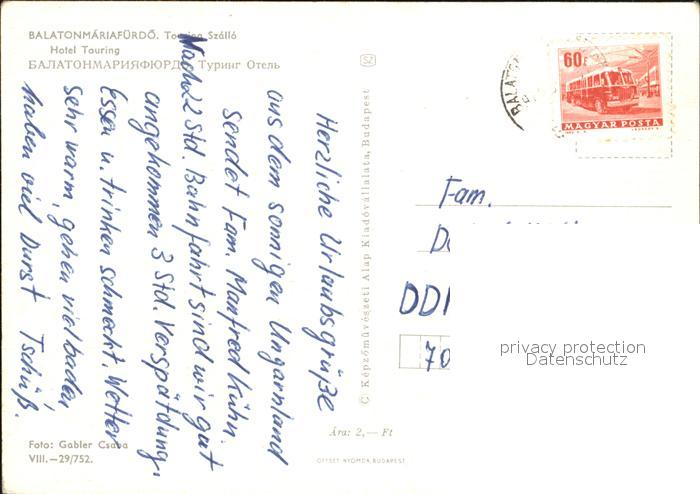 BALATONMÁRIAFÜRDŐ. Touring Szálló
Hotel Touring
БАЛАТОНМАРИЯФЮРДЁ Туринг Отель
Herzliche Urlaubsgrüße
aus dem sonnigen Ungarnland
sendet Fam. Manfred Kühn.
Nach 22 Std. Bahnfahrt sind wir gut
angekommen 3 Std. Verspätdung,
Essen u. trinken schmeckt. Wetter
sehr warm, gehen viel baden
haben viel Durst Tschüß.
Foto: Gabler Csaba
VIII.—29/752.
SZ
© Képzőművészeti Alap Kiadóvállalata, Budapest
Ára: 2,— Ft
OFFSET NYOMDA, BUDAPEST
BALATON
60f
MAGYAR POSTA
Fam.
DD
70
privacy protection
Datenschutz